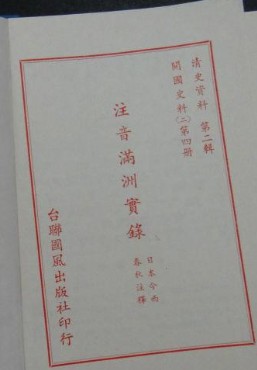 清史資料 第二輯
開國史料(二)第四冊
注音滿洲實錄
日本今西
春秋注釋
台聯國風出版社印行